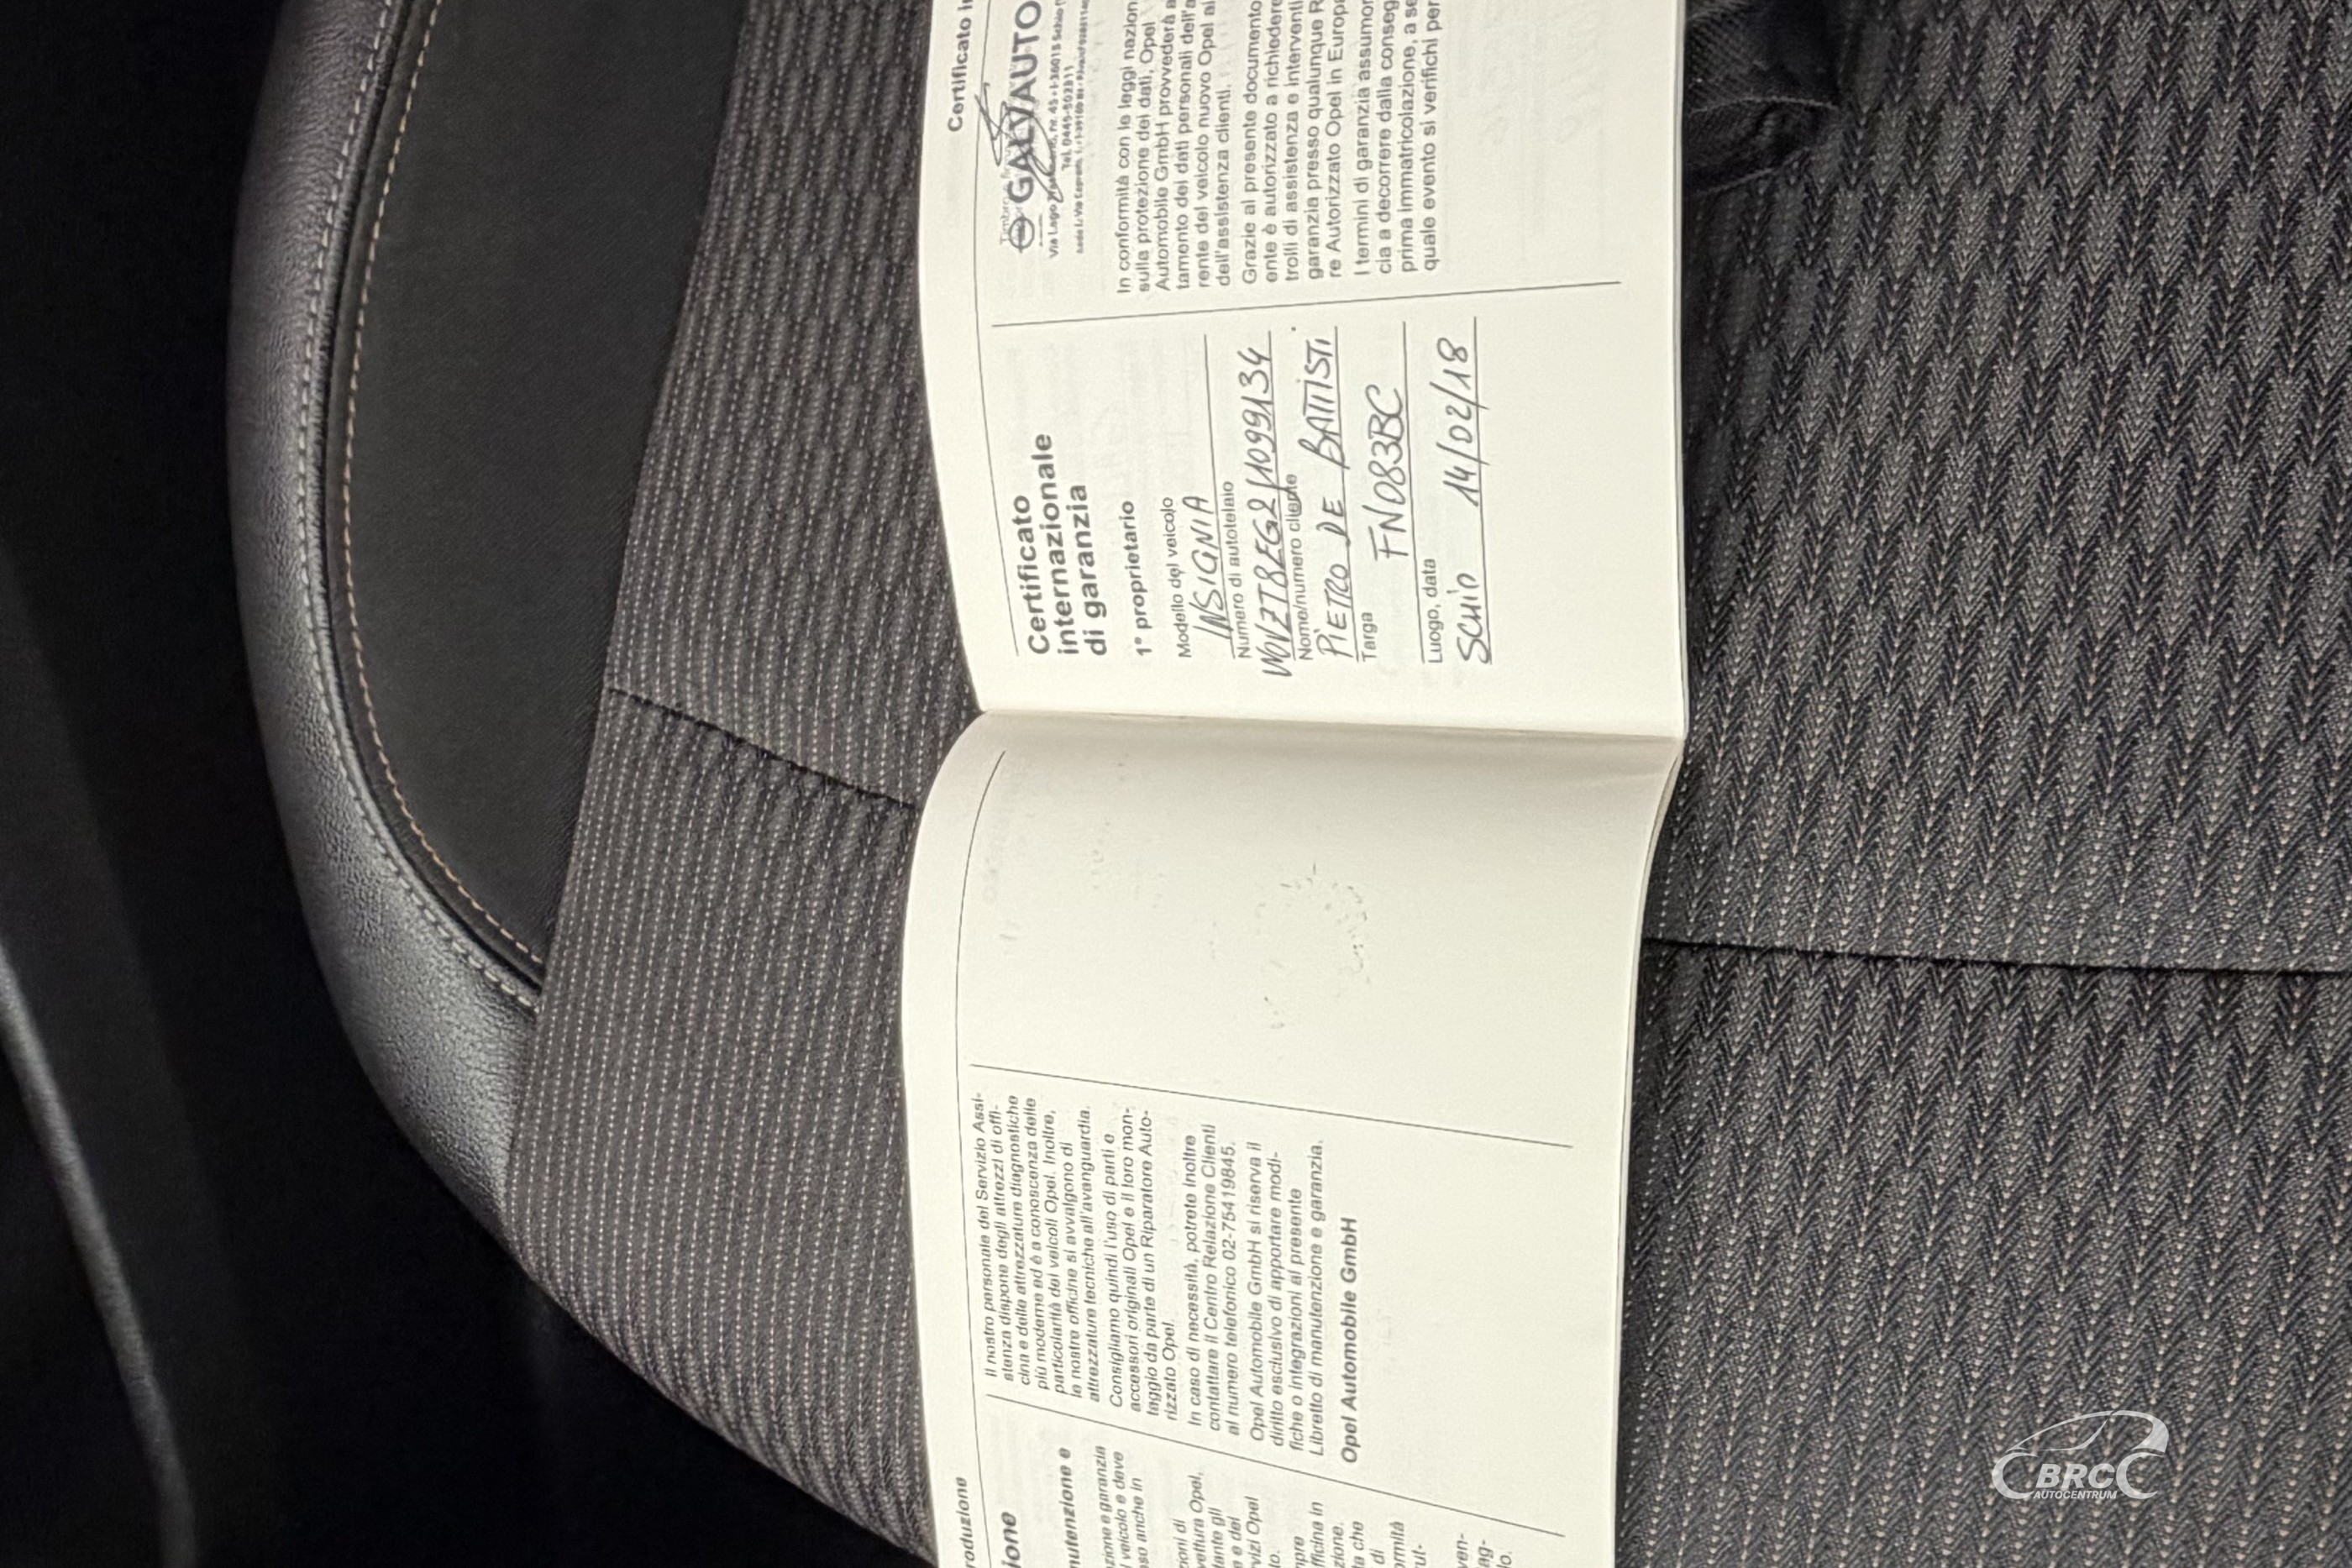 roduzione
ione
nutenzione e
zione e garanzia
l veicolo e deve
so anche in
zioni di
vettura Opel,
lante gli
e e del
vizi Opel
Il nostro personale del Servizio Assi-
stenza dispone degli attrezzi di offi-
cina e delle attrezzature diagnostiche
più moderne ed è a conoscenza delle
particolarità dei veicoli Opel. Inoltre,
le nostre officine si avvalgono di
attrezzature tecniche all'avanguardia.
Consigliamo quindi l'uso di parti e
accessori originali Opel e il loro mon-
taggio da parte di un Riparatore Auto-
rizzato Opel.
In caso di necessità, potrete inoltre
contattare il Centro Relazione Clienti
al numero telefonico 02-75419845.
Opel Automobile GmbH si riserva il
diritto esclusivo di apportare modi-
fiche o integrazioni al presente
Libretto di manutenzione e garanzia.
Opel Automobile GmbH
Certificato
internazionale
di garanzia
1° proprietario
Modello del veicolo
INSIGNIA
Numero di autotelaio
W0VZT8EG2J1099134
Nome/numero cliente
PIETRO DE BATTISTI
Targa
FN083BC
Luogo, data
SCHIO 14/02/18
Certificato
GALVAUTO
Tel. 0445-502811
In conformità con le leggi nazion
sulla protezione dei dati, Opel
Automobile GmbH provvederà a
tamento dei dati personali dell'a
rente del veicolo nuovo Opel al
dell'assistenza clienti.
Grazie al presente documento
ente è autorizzato a richiedere
trolli di assistenza e interventi
garanzia presso qualunque R
re Autorizzato Opel in Europ
I termini di garanzia assumo
cia a decorrere dalla conseg
prima immatricolazione, a se
quale evento si verifichi per
BRC
AUTOCENTRUM